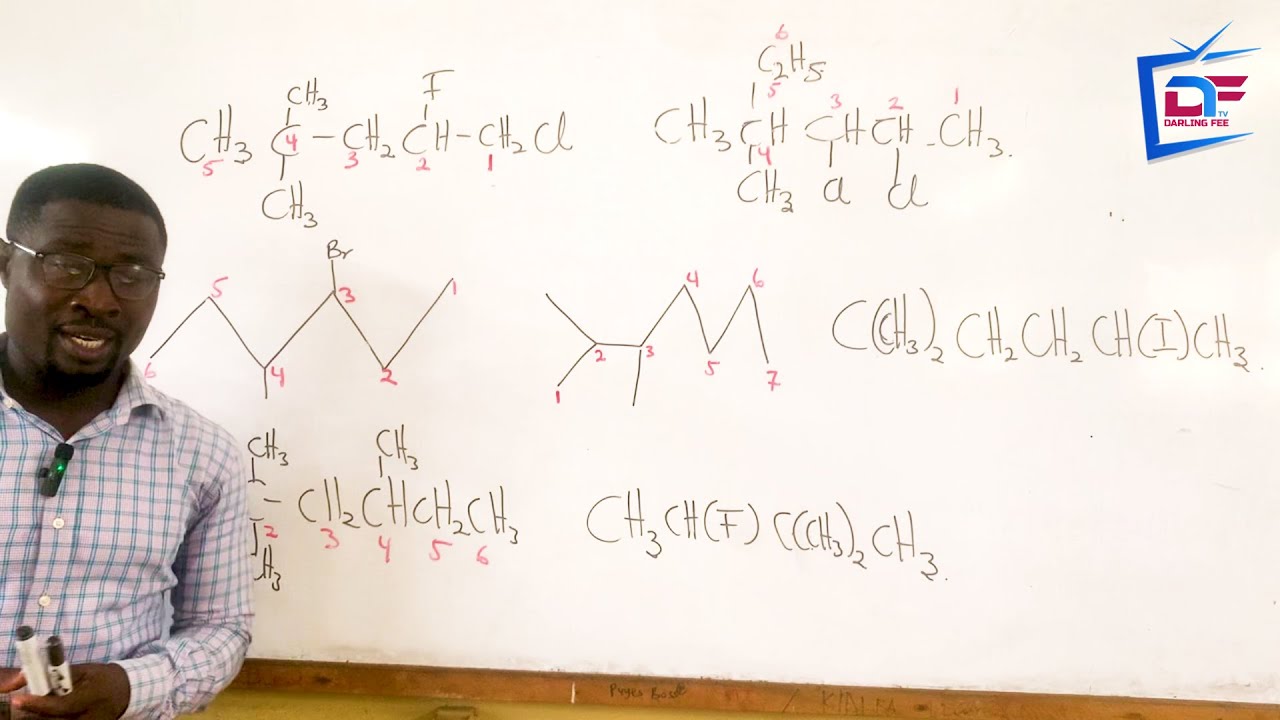 DF TV
DARLING FEE
CH3 F
CH3 C – CH2 CH – CH2Cl
5 4 3 2 1
CH3
6
C2H5
5 3 2 1
CH3 CH CH CH - CH3.
4
CH3 Cl Cl
Br
5 3 1
6 4 2
4 6
2 3
1 5 7
C(CH3)2 CH2 CH2 CH(I) CH3.
CH3 CH3
– CH2 CH CH2 CH3
2 3 4 5 6
CH3
CH3 CH(F) C(CH3)2 CH3.